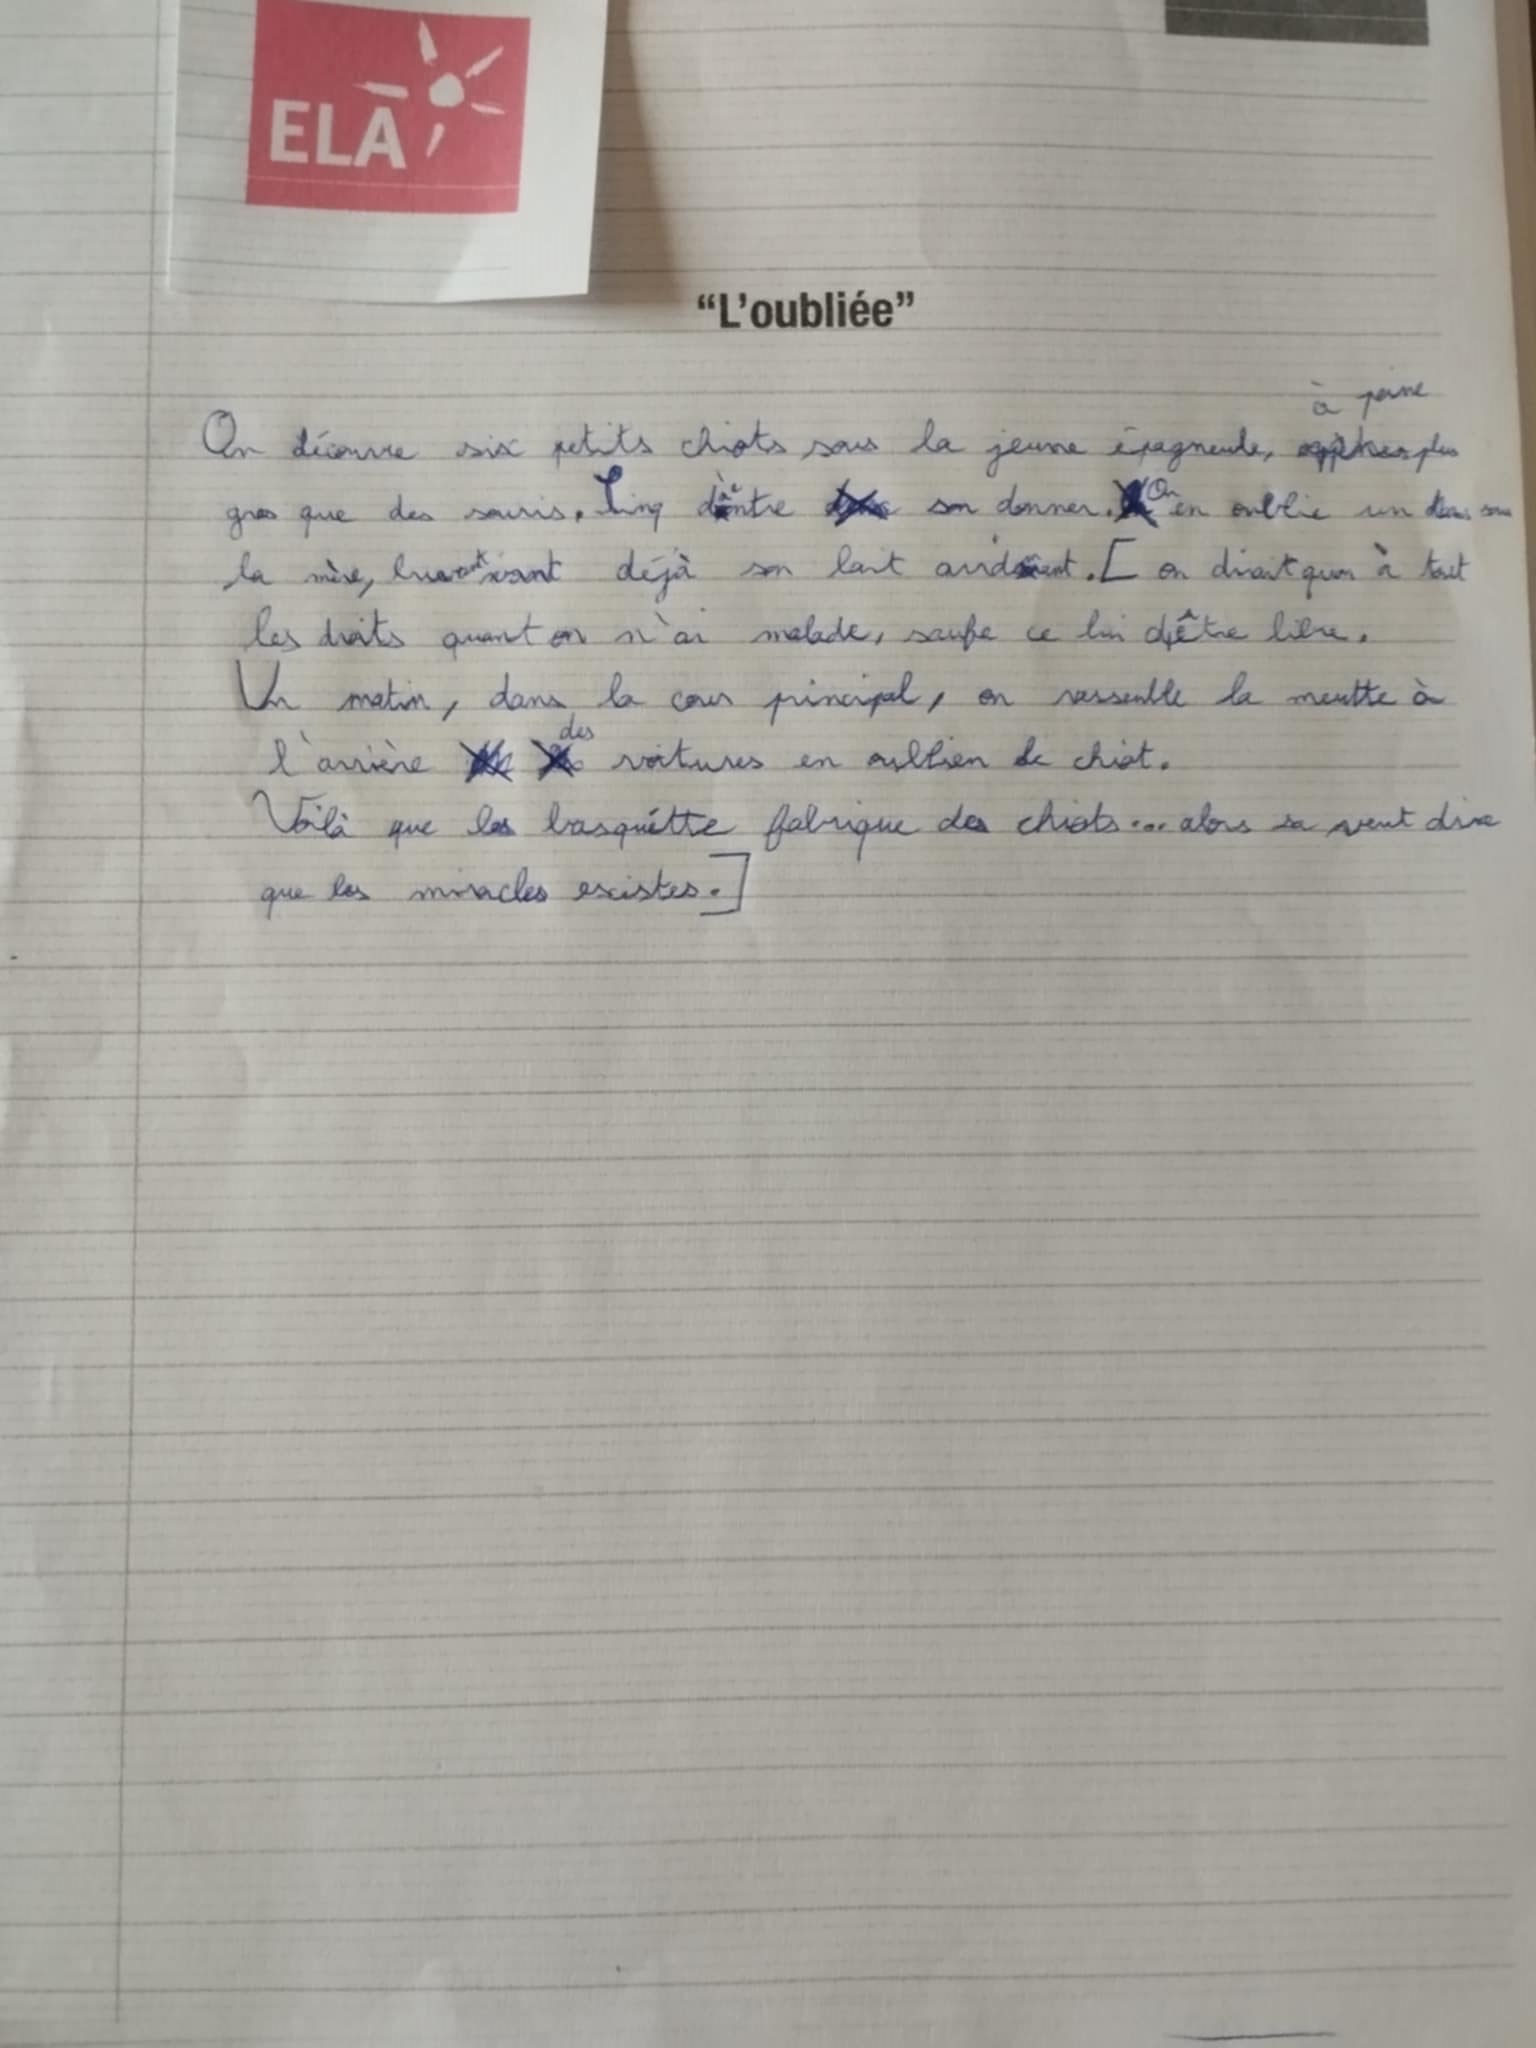 ELA
“L’oubliée”
à peine
On découvre six petits chiots sous la jeune épagneule, plus
gros que des souris. Cinq d'entre son donner. On en oublie un sous
la mère, buvant déjà son lait. [ on dirait qu'on à tout
les droits quant on n'ai malade, saufe ce lui d'être libre.
Un matin, dans la cour principal, on rassemble la meutte à
l'arrière des voitures en oublien le chiot.
Voilà que les basquétte fabrique des chiots... alors sa veut dire
que les miracles existes.]